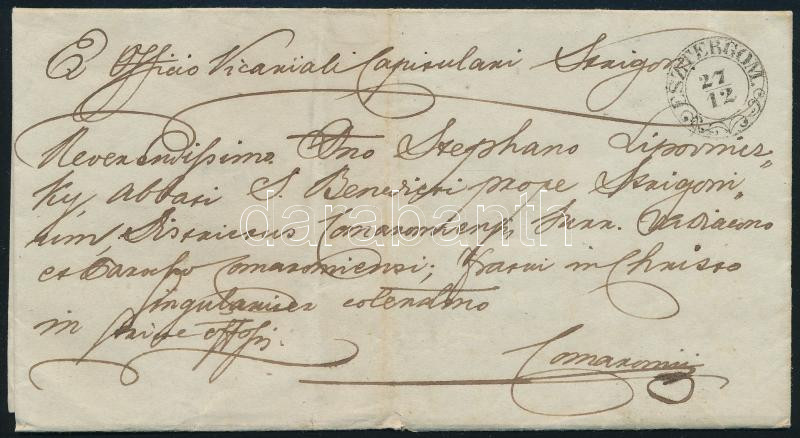 Ex Officio Vicariali Capitulari Strigon
ESZTERGOM.
27
12
Reverendissimo Dno Stephano Lipovnicz-
ky, Abbati S. Benedicti prope Strigoni-
um, Districtus Comaromiensis, Surr. V. A Diacono
et Parocho Comaromiensi; Fratri in Christo
singulariter colendmo
in
Comaromii
darabanth